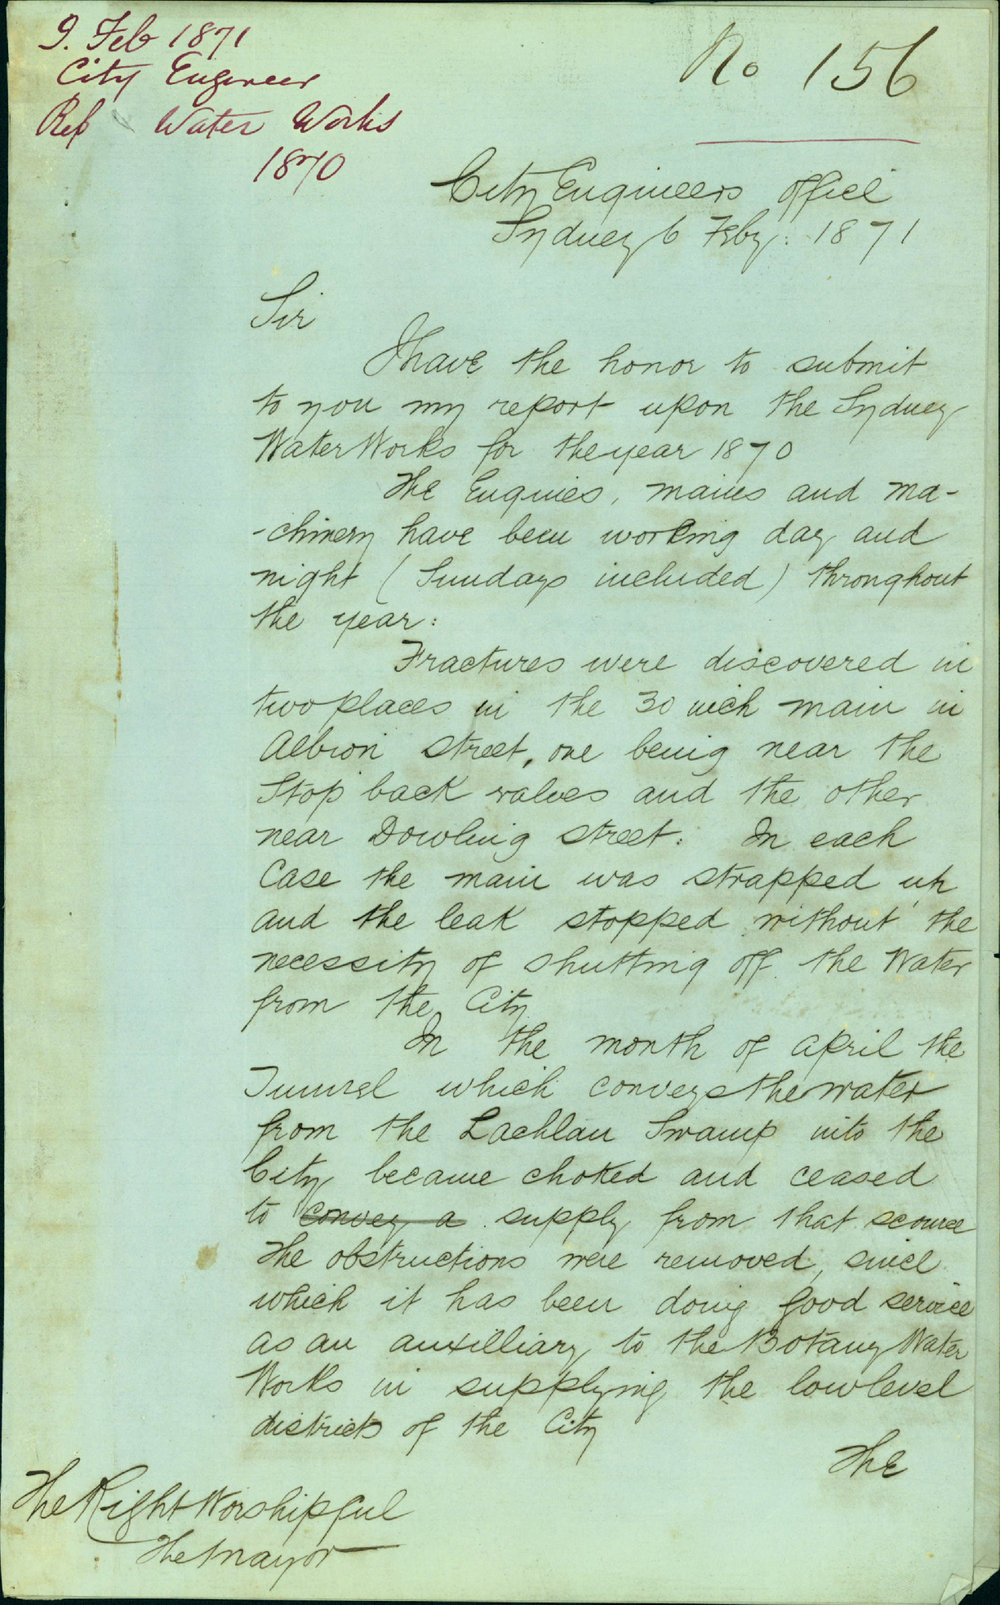 9. Feb 1871
City Engineer
Rep Water Works
1870
No 156
City Engineers office
Sydney 6 Feby. 1871
Sir
I have the honor to submit
to you my report upon the Sydney
Water Works for the year 1870
The Engines, mains and ma-
-chinery have been working day and
night (Sundays included) throughout
the year:
Fractures were discovered in
two places in the 30 inch main in
Albion street, one being near the
Stop back valves and the other
near Dowling street: In each
Case the main was strapped up
and the leak stopped without the
necessity of shutting off the Water
from the City
In the month of april the
Tunnel which conveys the water
from the Lachlan Swamp into the
City became choked and ceased
to convey a supply from that source
The obstructions were removed, since
which it has been doing good service
as an auxilliary to the Botany Water
Works in supplying the low level
districts of the City
The
The Right Worshipful
The Mayor